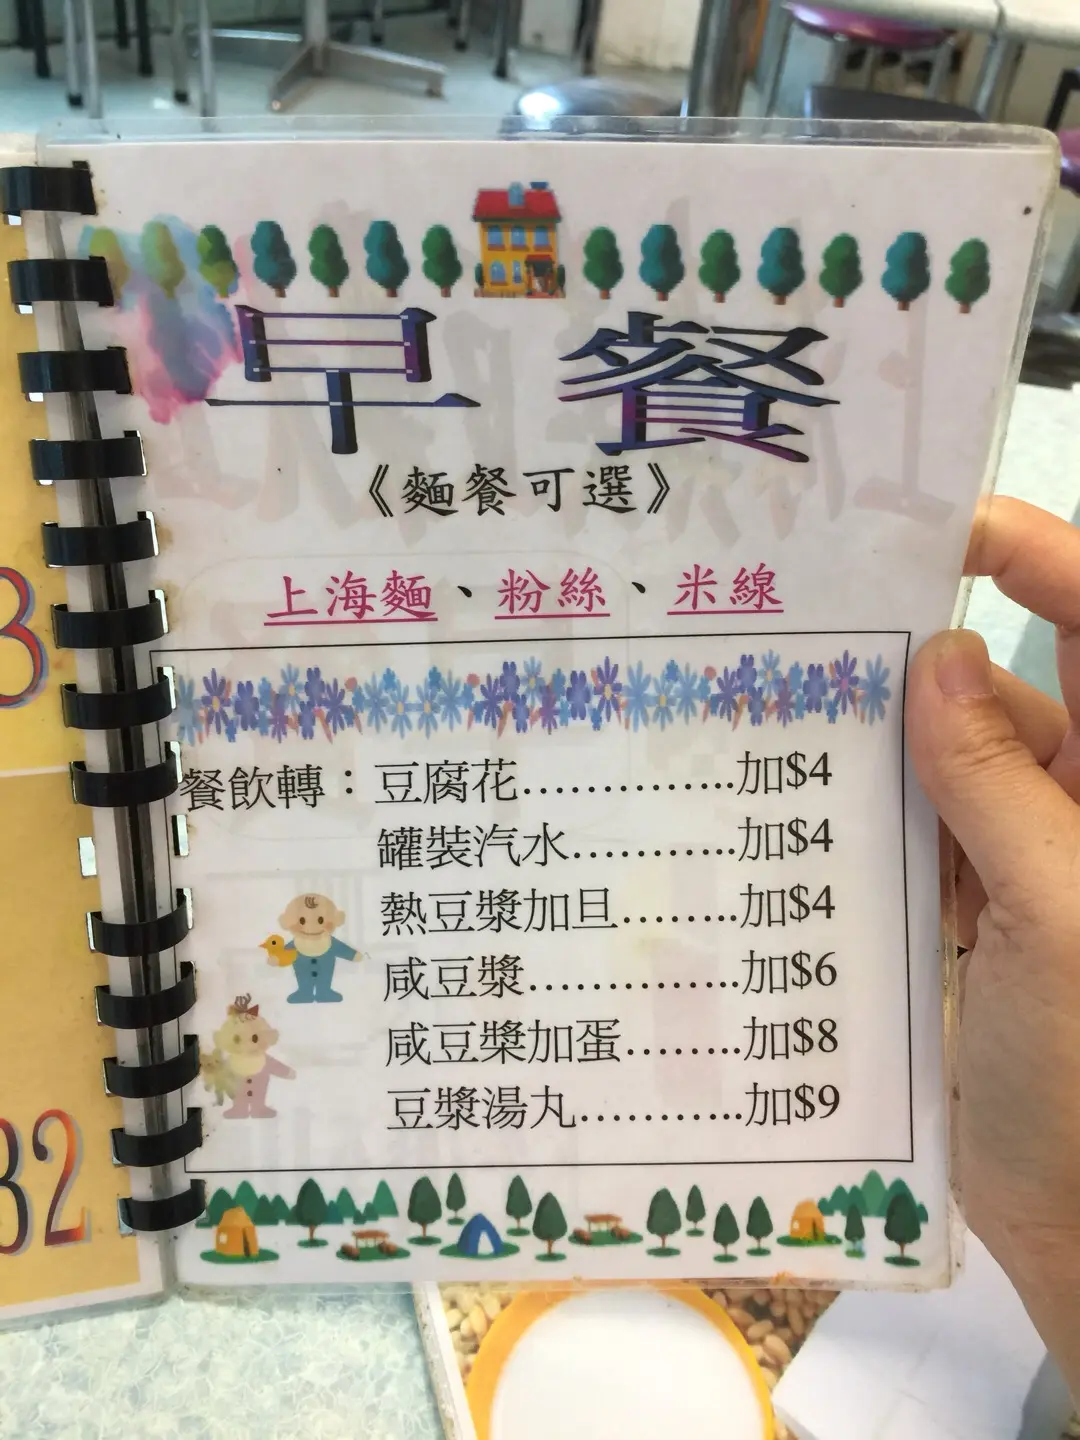 早餐
《麵餐可選》
上海麵、粉絲、米線
餐飲轉：豆腐花..............加$4
罐裝汽水............加$4
熱豆漿加旦........加$4
咸豆漿...............加$6
咸豆槳加蛋........加$8
豆漿湯丸............加$9
3
32